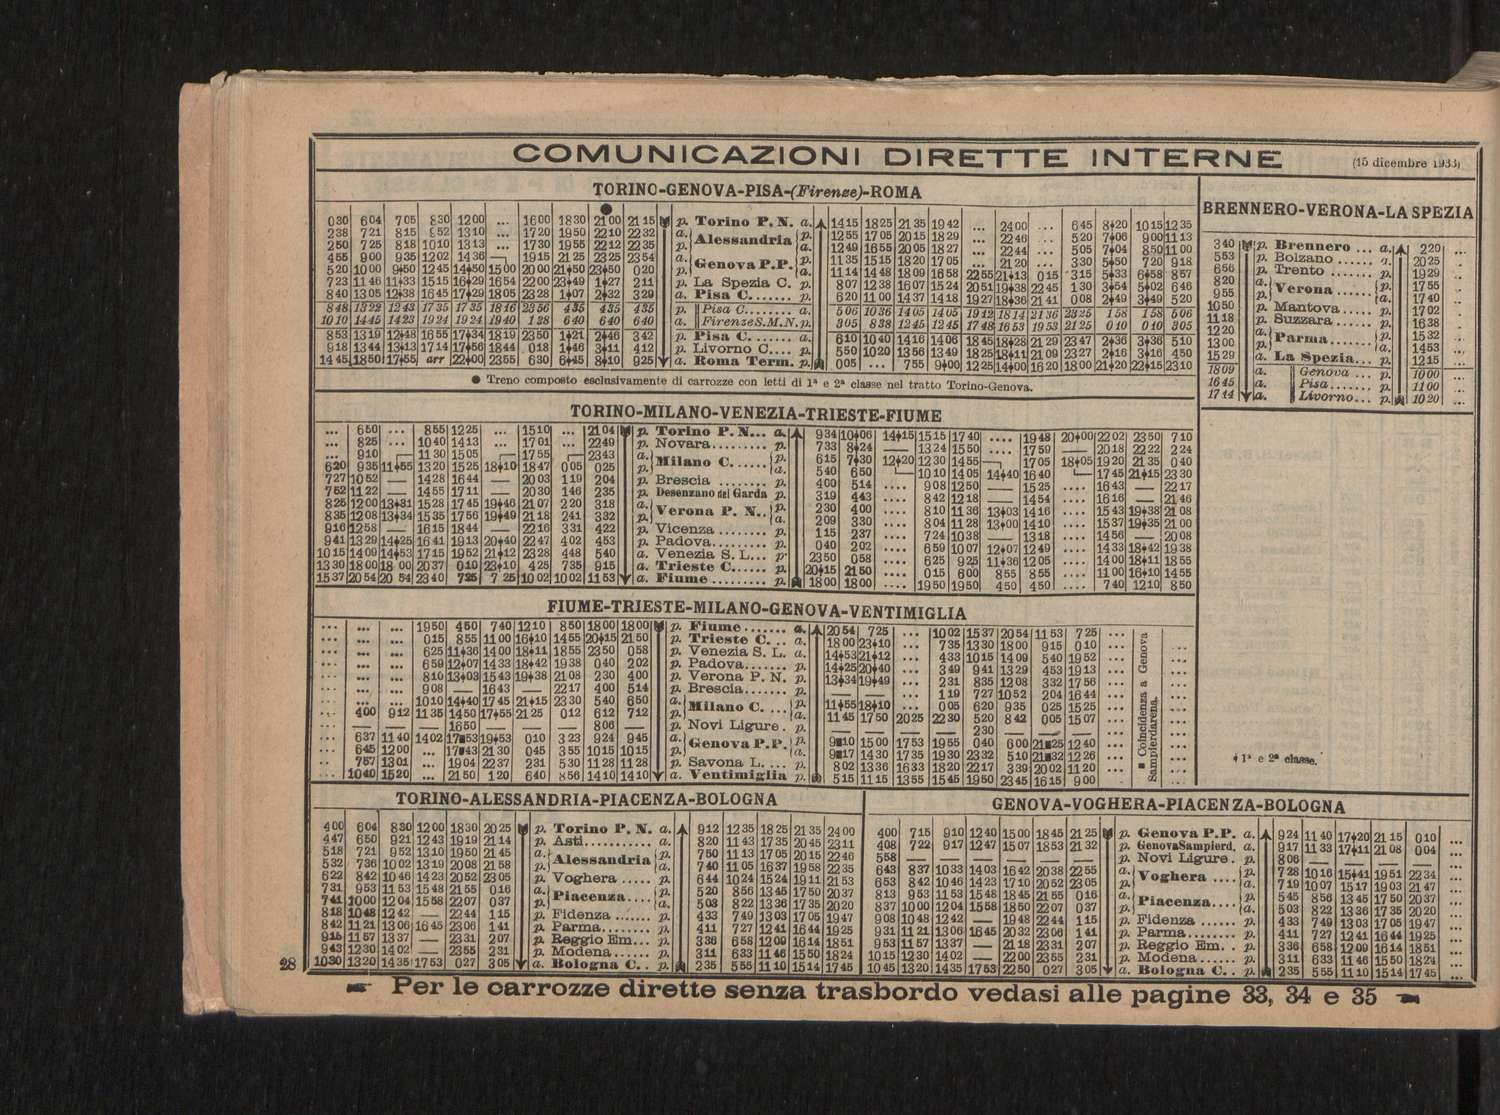 COMUNICAZIONI DIRETTE INTERNE
(15 dicembre 1933)
TORINO-GENOVA-PISA-(Firenze)-ROMA
030 604 705 830 1200 ... 1600 1830 2100 2115 p. Torino P. N. a. 1415 1825 2135 1942 ... 2400 ... 645 8♦20 1015 1235
238 721 815 852 1310 ... 1720 1950 2210 2232 a. Alessandria p. 1255 1705 2015 1829 ... 2246 ... 520 7♦06 900 1113
250 725 818 1010 1313 ... 1730 1955 2212 2235 p. 1249 1655 2005 1827 ... 2244 ... 505 7♦04 850 1100
455 900 935 1202 1436 1915 2125 2325 2354 a. Genova P.P. p. 1135 1515 1820 1705 ... 2120 ... 330 5♦50 720 918
520 1000 9♦50 1245 14♦50 1500 2000 21♦50 23♦50 020 p. a. 1114 1448 1809 1658 2255 21♦13 015 315 5♦33 6♦58 857
723 1146 11♦33 1515 16♦29 1654 2200 23♦49 1♦27 211 p. La Spezia C. p. 807 1238 1607 1524 2051 19♦38 2245 130 3♦54 5♦02 646
840 1305 12♦38 1645 17♦29 1805 2328 1♦07 2♦32 329 a. Pisa C. p. 620 1100 1437 1418 1927 18♦36 2141 008 2♦49 3♦49 520
848 1322 1243 1735 1735 1816 2356 435 435 435 p. Pisa C. a. 506 1036 1405 1405 1912 1814 2136 2325 158 158 506
1010 1445 1423 1924 1924 1940 128 640 640 640 a. Firenze S.M.N. p. 305 838 1245 1245 1748 1653 1953 2125 010 010 305
853 1319 12♦48 1655 17♦34 1819 2350 1♦21 2♦46 342 p. Pisa C. p. 610 1040 1416 1406 1845 18♦28 2129 2347 2♦36 3♦36 510
918 1344 13♦13 1714 17♦56 1844 018 1♦46 3♦11 412 p. Livorno C. p. 550 1020 1356 1349 1825 18♦11 2109 2327 2♦16 3♦16 450
1445 1850 17♦55 arr 22♦00 2355 630 6♦45 8♦10 925 a. Roma Term. p. 005 ... 755 9♦00 1225 14♦00 1620 1800 21♦20 22♦15 2310
● Treno composto esclusivamente di carrozze con letti di 1ª e 2ª classe nel tratto Torino-Genova.
BRENNERO-VERONA-LA SPEZIA
340 p. Brennero ... a. 220 ...
553 p. Bolzano ...... a. 2025
656 p. Trento ...... p. 1929
820 a. Verona p. 1755
955 p. a. 1740
1050 p. Mantova .... p. 1702
1118 p. Suzzara .... p. 1638
1220 a. Parma p. 1532
1300 p. a. 1453
1529 a. La Spezia... p. 1215
1809 a. Genova ... p. 1000 ...
1645 a. Pisa ....... p. 1100 ...
1744 a. Livorno... p. 1020 ...
TORINO-MILANO-VENEZIA-TRIESTE-FIUME
... 650 ... 855 1225 ... 1510 ... 2104 p. Torino P. N... a. 934 10♦06 14♦15 1515 1740 .... 1948 20♦00 2202 2350 710
... 825 ... 1040 1413 ... 1701 ... 2249 p. Novara p. 733 8♦24 — 1324 1550 .... 1759 — 2018 2222 224
... 910 1130 1505 1755 2343 a. Milano C. p. 615 7♦30 12♦20 1230 1455 1705 18♦05 1920 2135 040
620 935 11♦55 1320 1525 18♦10 1847 005 025 p. a. 540 650 1010 1405 14♦40 1640 1745 21♦15 2330
727 1052 — 1428 1644 — 2003 119 204 p. Brescia p. 400 514 .... 908 1250 — 1525 .... 1643 — 2217
752 1122 — 1455 1711 — 2030 146 235 p. Desenzano del Garda p. 319 443 .... 842 1218 — 1454 .... 1616 — 2146
825 1200 13♦31 1528 1745 19♦46 2107 220 318 a. Verona P. N. p. 230 400 .... 810 1136 13♦03 1416 .... 1543 19♦38 2108
835 1208 13♦34 1535 1756 19♦49 2118 241 332 p. a. 209 330 .... 804 1128 13♦00 1410 .... 1537 19♦35 2100
916 1258 — 1615 1844 — 2216 331 422 p. Vicenza p. 115 237 .... 724 1038 — 1318 .... 1456 — 2008
941 1329 14♦25 1641 1913 20♦40 2247 402 453 p. Padova p. 040 202 .... 659 1007 12♦07 1249 .... 1433 18♦42 1938
1015 1409 14♦53 1715 1952 21♦12 2328 448 540 a. Venezia S. L. p. 2350 058 .... 625 925 11♦36 1205 .... 1400 18♦11 1855
1330 1800 1800 2037 010 23♦10 425 735 951 a. Trieste C. p. 20♦15 2150 .... 015 600 855 855 .... 1100 16♦10 1455
1537 2054 2054 2340 725 725 1002 1002 1153 a. Fiume p. 1800 1800 .... 1950 1950 450 450 .... 740 1210 850
FIUME-TRIESTE-MILANO-GENOVA-VENTIMIGLIA
... ... ... 1950 450 740 1210 850 1800 1800 p. Fiume a. 2054 725 ... 1002 1537 2054 1153 725 ...
... ... ... 015 855 1100 16♦10 1455 20♦15 2150 p. Trieste C. a. 1800 23♦10 ... 735 1330 1800 915 010 ...
... ... ... 625 11♦36 1400 18♦11 1855 2350 058 p. Venezia S. L. a. 14♦53 21♦12 ... 433 1015 1409 540 1952 ...
... ... ... 659 12♦07 1433 18♦42 1938 040 202 p. Padova p. 14♦25 20♦40 ... 349 941 1329 453 1913 ...
... ... ... 810 13♦03 1543 19♦38 2108 230 400 p. Verona P. N. p. 13♦34 19♦49 ... 231 835 1208 332 1756 ...
... ... ... 908 — 1643 — 2217 400 514 p. Brescia p. — — ... 119 727 1052 204 1644 ...
... ... ... 1010 14♦40 1745 21♦15 2330 540 650 a. Milano C. p. 11♦55 18♦10 ... 005 620 935 025 1525 ...
... 400 912 1135 1450 17♦55 2125 012 612 712 p. a. 1145 1750 2025 2230 520 842 005 1507 ...
1650 — 806 — p. Novi Ligure p. — 230 —
... 637 1140 1402 17■53 19♦53 010 323 924 945 a. Genova P.P. p. 9■10 1500 1753 1955 040 600 21■25 1240 ...
... 645 1200 ... 17■43 2130 045 355 1015 1015 p. a. 9■17 1430 1735 1930 2332 510 21■32 1226 ...
... 757 1301 ... 1904 2237 231 530 1128 1128 p. Savona L. p. 802 1336 1633 1820 2217 339 2002 1120 ...
... 1040 1520 ... 2150 120 640 856 1410 1410 a. Ventimiglia p. 515 1115 1355 1545 1950 2345 1615 900 ...
■ Coincidenza a Genova Sampierdarena.
♦ 1ª e 2ª classe.
TORINO-ALESSANDRIA-PIACENZA-BOLOGNA
400 604 830 1200 1830 2025 p. Torino P. N. a. 912 1235 1825 2135 2400
447 650 921 1243 1919 2114 p. Asti p. 820 1143 1735 2045 2311
518 721 952 1310 1950 2145 a. Alessandria p. 750 1113 1705 2015 2246
532 736 1002 1319 2008 2158 p. a. 740 1105 1637 1955 2232
622 842 1046 1423 2052 2305 p. Voghera p. 644 1024 1524 1911 2153
731 953 1153 1548 2155 016 a. Piacenza p. 520 856 1345 1750 2037
741 1000 1204 1558 2207 037 p. a. 503 822 1336 1735 2020
818 1048 1242 — 2244 115 p. Fidenza p. 433 749 1303 1705 1947
842 1121 1306 1645 2306 141 p. Parma p. 411 727 1241 1644 1925
915 1157 1337 — 2331 207 p. Reggio Em. p. 336 658 1209 1614 1851
943 1230 1402 — 2355 231 p. Modena p. 311 633 1146 1550 1824
1030 1320 1435 1753 027 305 a. Bologna C. p. 235 555 1110 1514 1745
GENOVA-VOGHERA-PIACENZA-BOLOGNA
400 715 910 1240 1500 1845 2125 p. Genova P.P. a. 924 1140 17♦20 2115 010 ...
408 722 917 1247 1507 1853 2132 p. Genova Sampierd. a. 917 1133 17♦11 2108 004 ...
558 — p. Novi Ligure p. 806 —
643 837 1033 1403 1642 2038 2255 a. Voghera p. 728 1016 15♦41 1951 2234 ...
653 842 1046 1423 1710 2052 2305 p. a. 719 1007 1517 1903 2147 ...
813 953 1153 1548 1845 2155 016 a. Piacenza p. 545 856 1345 1750 2037 ...
837 1000 1204 1558 1850 2207 037 p. a. 503 822 1336 1735 2020 ...
908 1048 1242 — 1948 2244 115 p. Fidenza p. 433 749 1303 1705 1947 ...
931 1121 1306 1645 2032 2306 141 p. Parma p. 411 727 1241 1644 1925 ...
953 1157 1337 — 2118 2331 207 p. Reggio Em. p. 336 658 1209 1614 1851 ...
1015 1230 1402 — 2200 2355 231 p. Modena p. 311 633 1146 1550 1824 ...
1045 1320 1435 1753 2250 027 305 a. Bologna C. p. 235 555 1110 1514 1745 ...
28
Per le carrozze dirette senza trasbordo vedasi alle pagine 33, 34 e 35